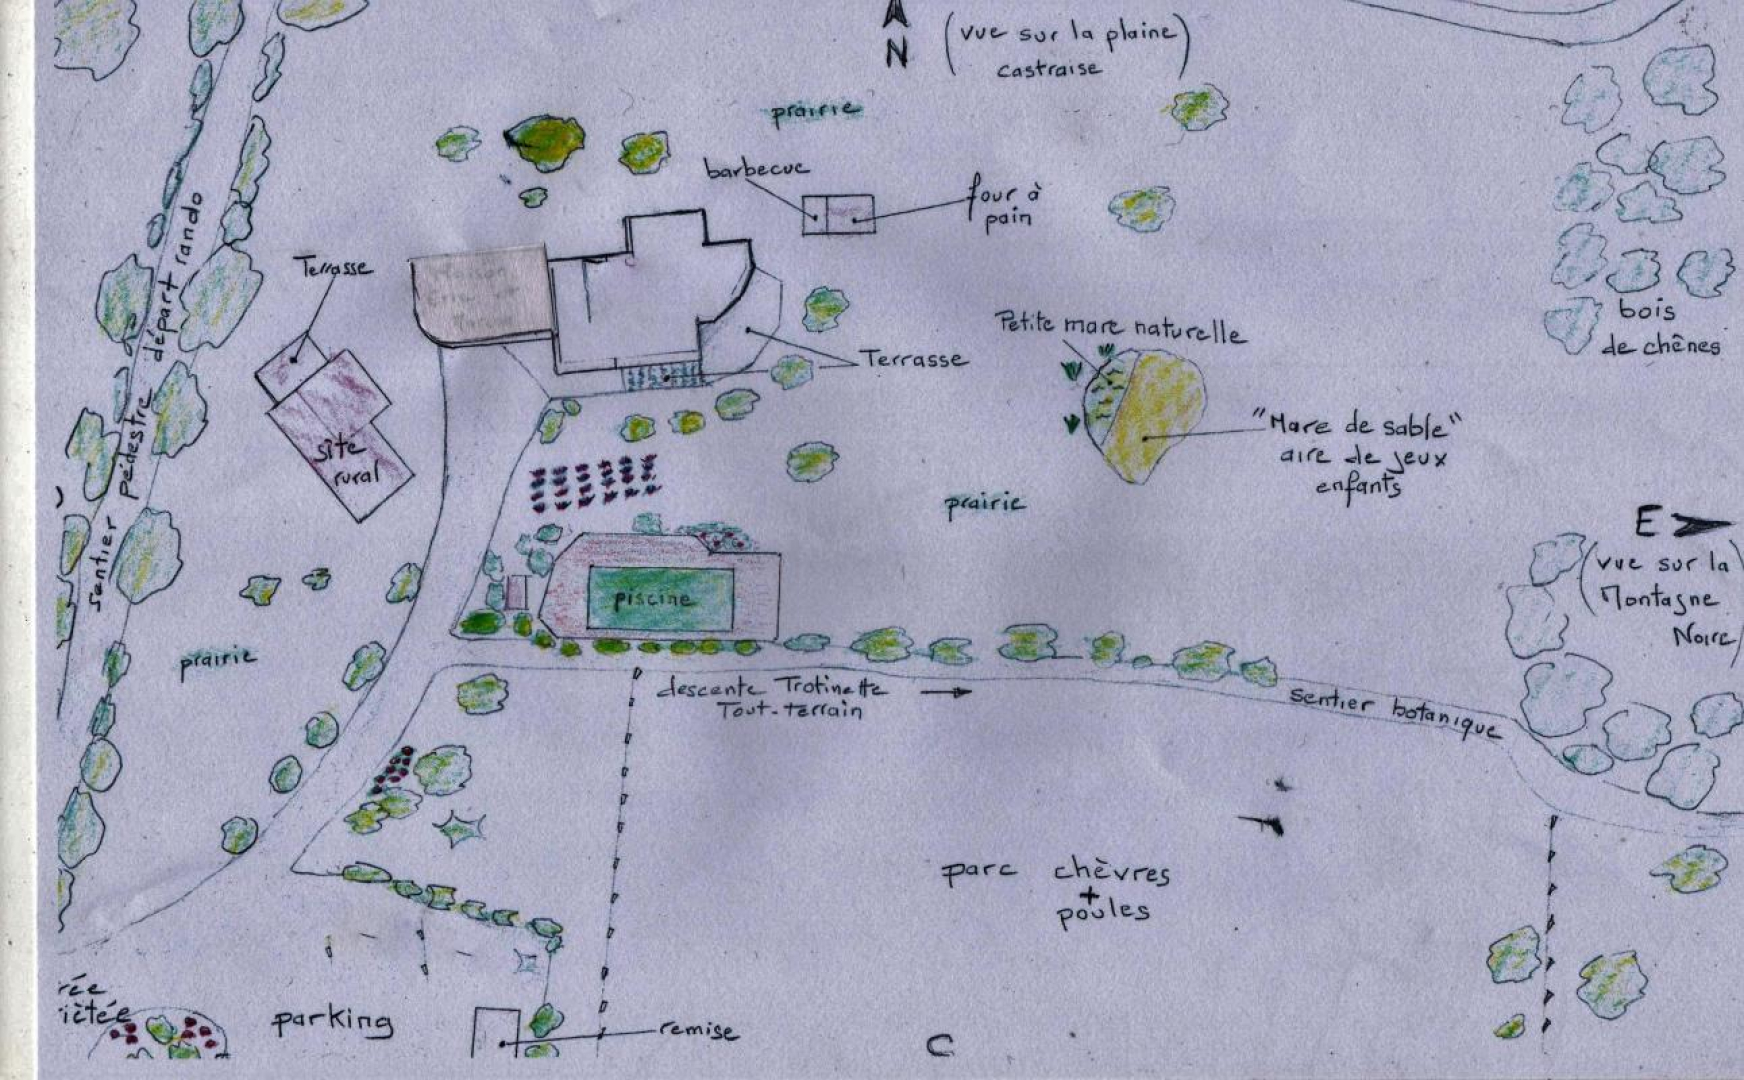 N
(vue sur la plaine
castraise)
prairie
barbecue
four à
pain
Terrasse
Maison
Terrasse
Petite mare naturelle
"Mare de sable"
aire de jeux
enfants
bois
de chênes
E
(vue sur la
Montagne
Noire)
site
rural
sentier pédestre départ rando
prairie
prairie
piscine
descente Trotinette
Tout-terrain
sentier botanique
parc chèvres
+
poules
rée
iètée
parking
remise
C